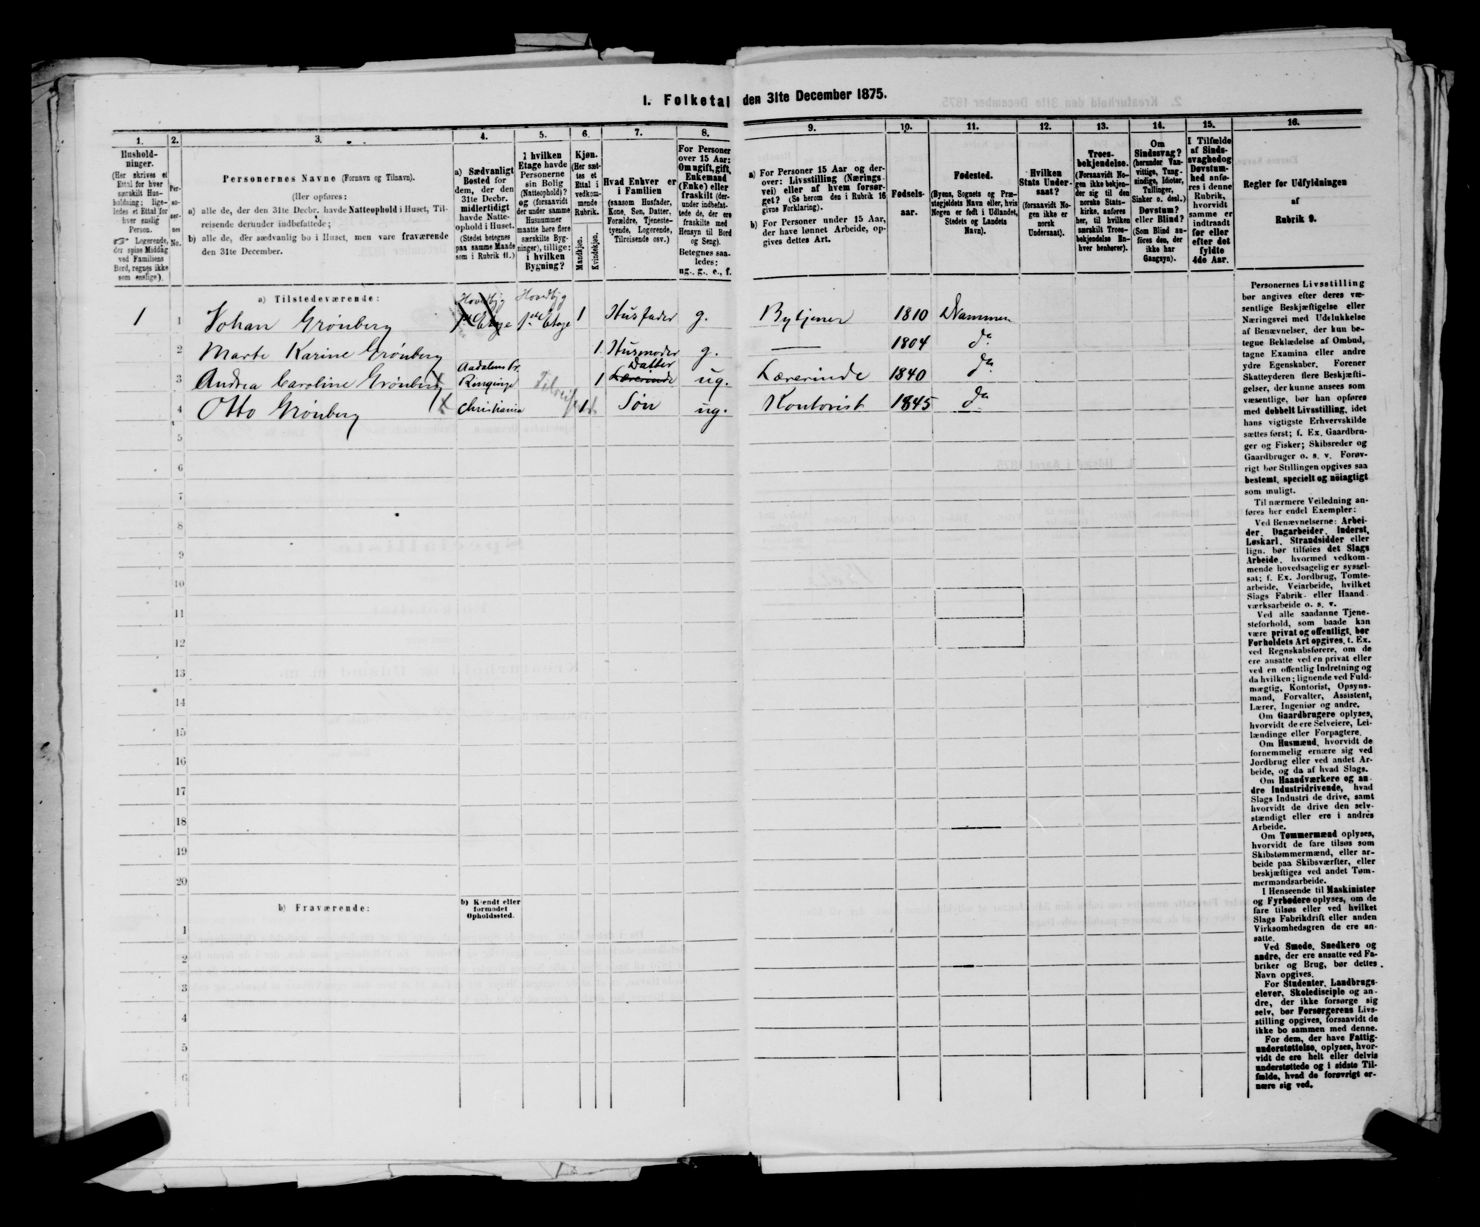 I. Folketal den 31te December 1875.
1. 2. 3. 4. 5. 6. 7. 8. 9. 10. 11. 12. 13. 14. 15. 16.
Hushold-
ninger.
(Her skrives et
Ettal for hver
særskilt Hus-
holdning; lige-
ledes et Ettal for
hver enslig
Person.
☞ Logerende,
der spise Middag
ved Familiens
Bord, regnes ikke
som enslige).
Per-
so-
ner-
nes
No.
Personernes Navne (Fornavn og Tilnavn).
(Her opføres:
a) alle de, der den 31te Decbr. havde Natteophold i Huset, Til-
reisende derunder indbefattede;
b) alle de, der sædvanlig bo i Huset, men vare fraværende
den 31te December.
a) Sædvanligt
Bosted for
dem, der den
31te Decbr.
midlertidigt
havde Natte-
ophold i Huset.
(Stedet betegnes
paa samme Maade
som i Rubrik 11.)
I hvilken
Etage havde
Personerne
sin Bolig
(Natteophold)?
og (forsaavidt
der under samme
Husnummer
maatte høre flere
særskilte Byg-
ninger), tillige:
i hvilken
Bygning?
Kjøn.
(Her sæt-
tes et
Ettal i
vedkom-
mende
Rubrik.
Mandkjøn.
Kvindekjøn.
Hvad Enhver er
i Familien
(saasom Husfader,
Kone, Søn, Datter,
Forældre, Tjeneste-
tyende, Logerende,
Tilreisende osv.)
For Personer
over 15 Aar:
Om ugift, gift,
Enkemand
(Enke) eller
fraskilt (der-
under indbefat-
tede de, der ere
fraskilte med
Hensyn til Bord
og Seng).
Betegnes saa-
ledes:
ug., g., e., f.
a) For Personer 15 Aar og der-
over: Livsstilling (Nærings-
vei) eller af hvem forsør-
get? (Se herom den i Rubrik 16
givne Forklaring).
b) For Personer under 15 Aar,
der have lønnet Arbeide, op-
gives dettes Art.
Fødsels-
aar.
Fødested.
(Byens, Sognets og Præ-
stegjeldets Navn eller, hvis
Nogen er født i Udlandet,
Stedets og Landets
Navn).
Hvilken
Stats Under-
saat?
(forsaavidt No-
gen ikke er
norsk
Undersaat).
Troes-
bekjendelse.
(Forsaavidt No-
gen ikke bekjen-
der sig til den
norske Stats-
kirke, anføres
her, til hvilken
særskilt Troes-
bekjendelse En-
hver henhører).
Om
Sindssvag?
(herunder Van-
vittige, Tung-
sindige, Idioter,
Tullinger,
Sinker o. desl.)
Døvstum?
eller Blind?
(Som Blind an-
føres den, der
ikke har
Gangsyn).
I Tilfælde
af Sinds-
svaghed og
Døvstum-
hed anfø-
res i denne
Rubrik,
hvorvidt
samme er
indtraadt
før eller
efter det
fyldte
4de Aar.
Regler for Udfyldningen
af
Rubrik 9.
a) Tilstedeværende:
1 1 Johan Grønberg Hovedbyg 1ste Etage Hovedbyg 1ste Etage 1 Husfader g. Bytjener 1810 Drammen
2 Marte Karine Grønberg 1 Husmoder g. — 1804 do
3 Andrea Caroline Grønberg Aadalens Pr. Ringerige 1 Lærerinde Datter ug. Lærerinde 1840 do
4 Otto Grønberg Christiania 1 Søn ug. Kontorist 1845 do
5
6
7
8
9
10
11
12
13
14
15
16
17
18
19
20
b) Fraværende:
b) Kjendt eller
formodet
Opholdssted.
1
2
3
4
5
6
Personernes Livsstilling
bør angives efter deres væ-
sentlige Beskjæftigelse eller
Næringsvei med Udelukkelse
af Benævnelser, der kun be-
tegne Beklædelse af Ombud,
tagne Examina eller andre
ydre Egenskaber. Forener
Skatteyderen flere Beskjæfti-
gelser, der kunne ansees som
væsentlige, bør han opføres
med dobbelt Livsstilling, idet
hans vigtigste Erhvervskilde
sættes først; f. Ex. Gaardbru-
ger og Fisker; Skibsreder og
Gaardbruger o. s. v. Forøv-
rigt bør Stillingen opgives saa
bestemt, specielt og nöiagtigt
som muligt.
Til nærmere Veiledning an-
føres her endel Exempler:
Ved Benævnelserne: Arbei-
der, Dagarbeider, Inderst,
Løskarl, Strandsidder eller
lign. bør tilføies det Slags
Arbeide, hvormed vedkom-
mende hovedsagelig er syssel-
sat; f. Ex. Jordbrug, Tomte-
arbeide, Veiarbeide, hvilket
Slags Fabrik- eller Haand-
værksarbeide o. s. v.
Ved alle saadanne Tjene-
steforhold, som baade kan
være privat og offentligt, bør
Forholdets Art opgives, t. Ex.
ved Regnskabsførere, om de
ere ansatte ved en privat eller
ved en offentlig Indretning og
da hvilken; lignende ved Fuld-
mægtig, Kontorist, Opsyns-
mand, Forvalter, Assistent,
Lærer, Ingeniør og andre.
Om Gaardbrugere oplyses,
hvorvidt de ere Selveiere, Lei-
lændinge eller Forpagtere.
Om Husmænd, hvorvidt de
fornemmelig ernære sig ved
Jordbrug eller ved andet Ar-
beide, og da af hvad Slags.
Om Haandværkere og an-
dre Industridrivende, hvad
Slags Industri de drive, samt
hvorvidt de drive den selv-
stændigt eller ere i andres
Arbeide.
Om Tømmermænd oplyses,
hvorvidt de fare tilsøs som
Skibstømmermænd, eller ar-
beide paa Skibsværfter, eller
beskjæftiges ved andet Tøm-
mermandsarbeide.
I Henseende til Maskinister
og Fyrbødere oplyses, om de
fare tilsøs eller ved hvilket
Slags Fabrikdrift eller anden
Virksomhedsgren de ere an-
satte.
Ved Smede, Snedkere og
andre, der ere ansatte ved Fa-
briker og Brug, bør dettes
Navn opgives.
For Studenter, Landbrugs-
elever, Skoledisciple og an-
dre, der ikke forsørge sig
selv, bør Forsørgerens Livs-
stilling opgives, forsaavidt de
ikke bo sammen med denne.
For dem, der have Fattig-
understøttelse, oplyses, hvor-
vidt de ere helt eller delvis
understøttede og i sidste Til-
fælde, hvad de forøvrigt er-
nære sig ved.